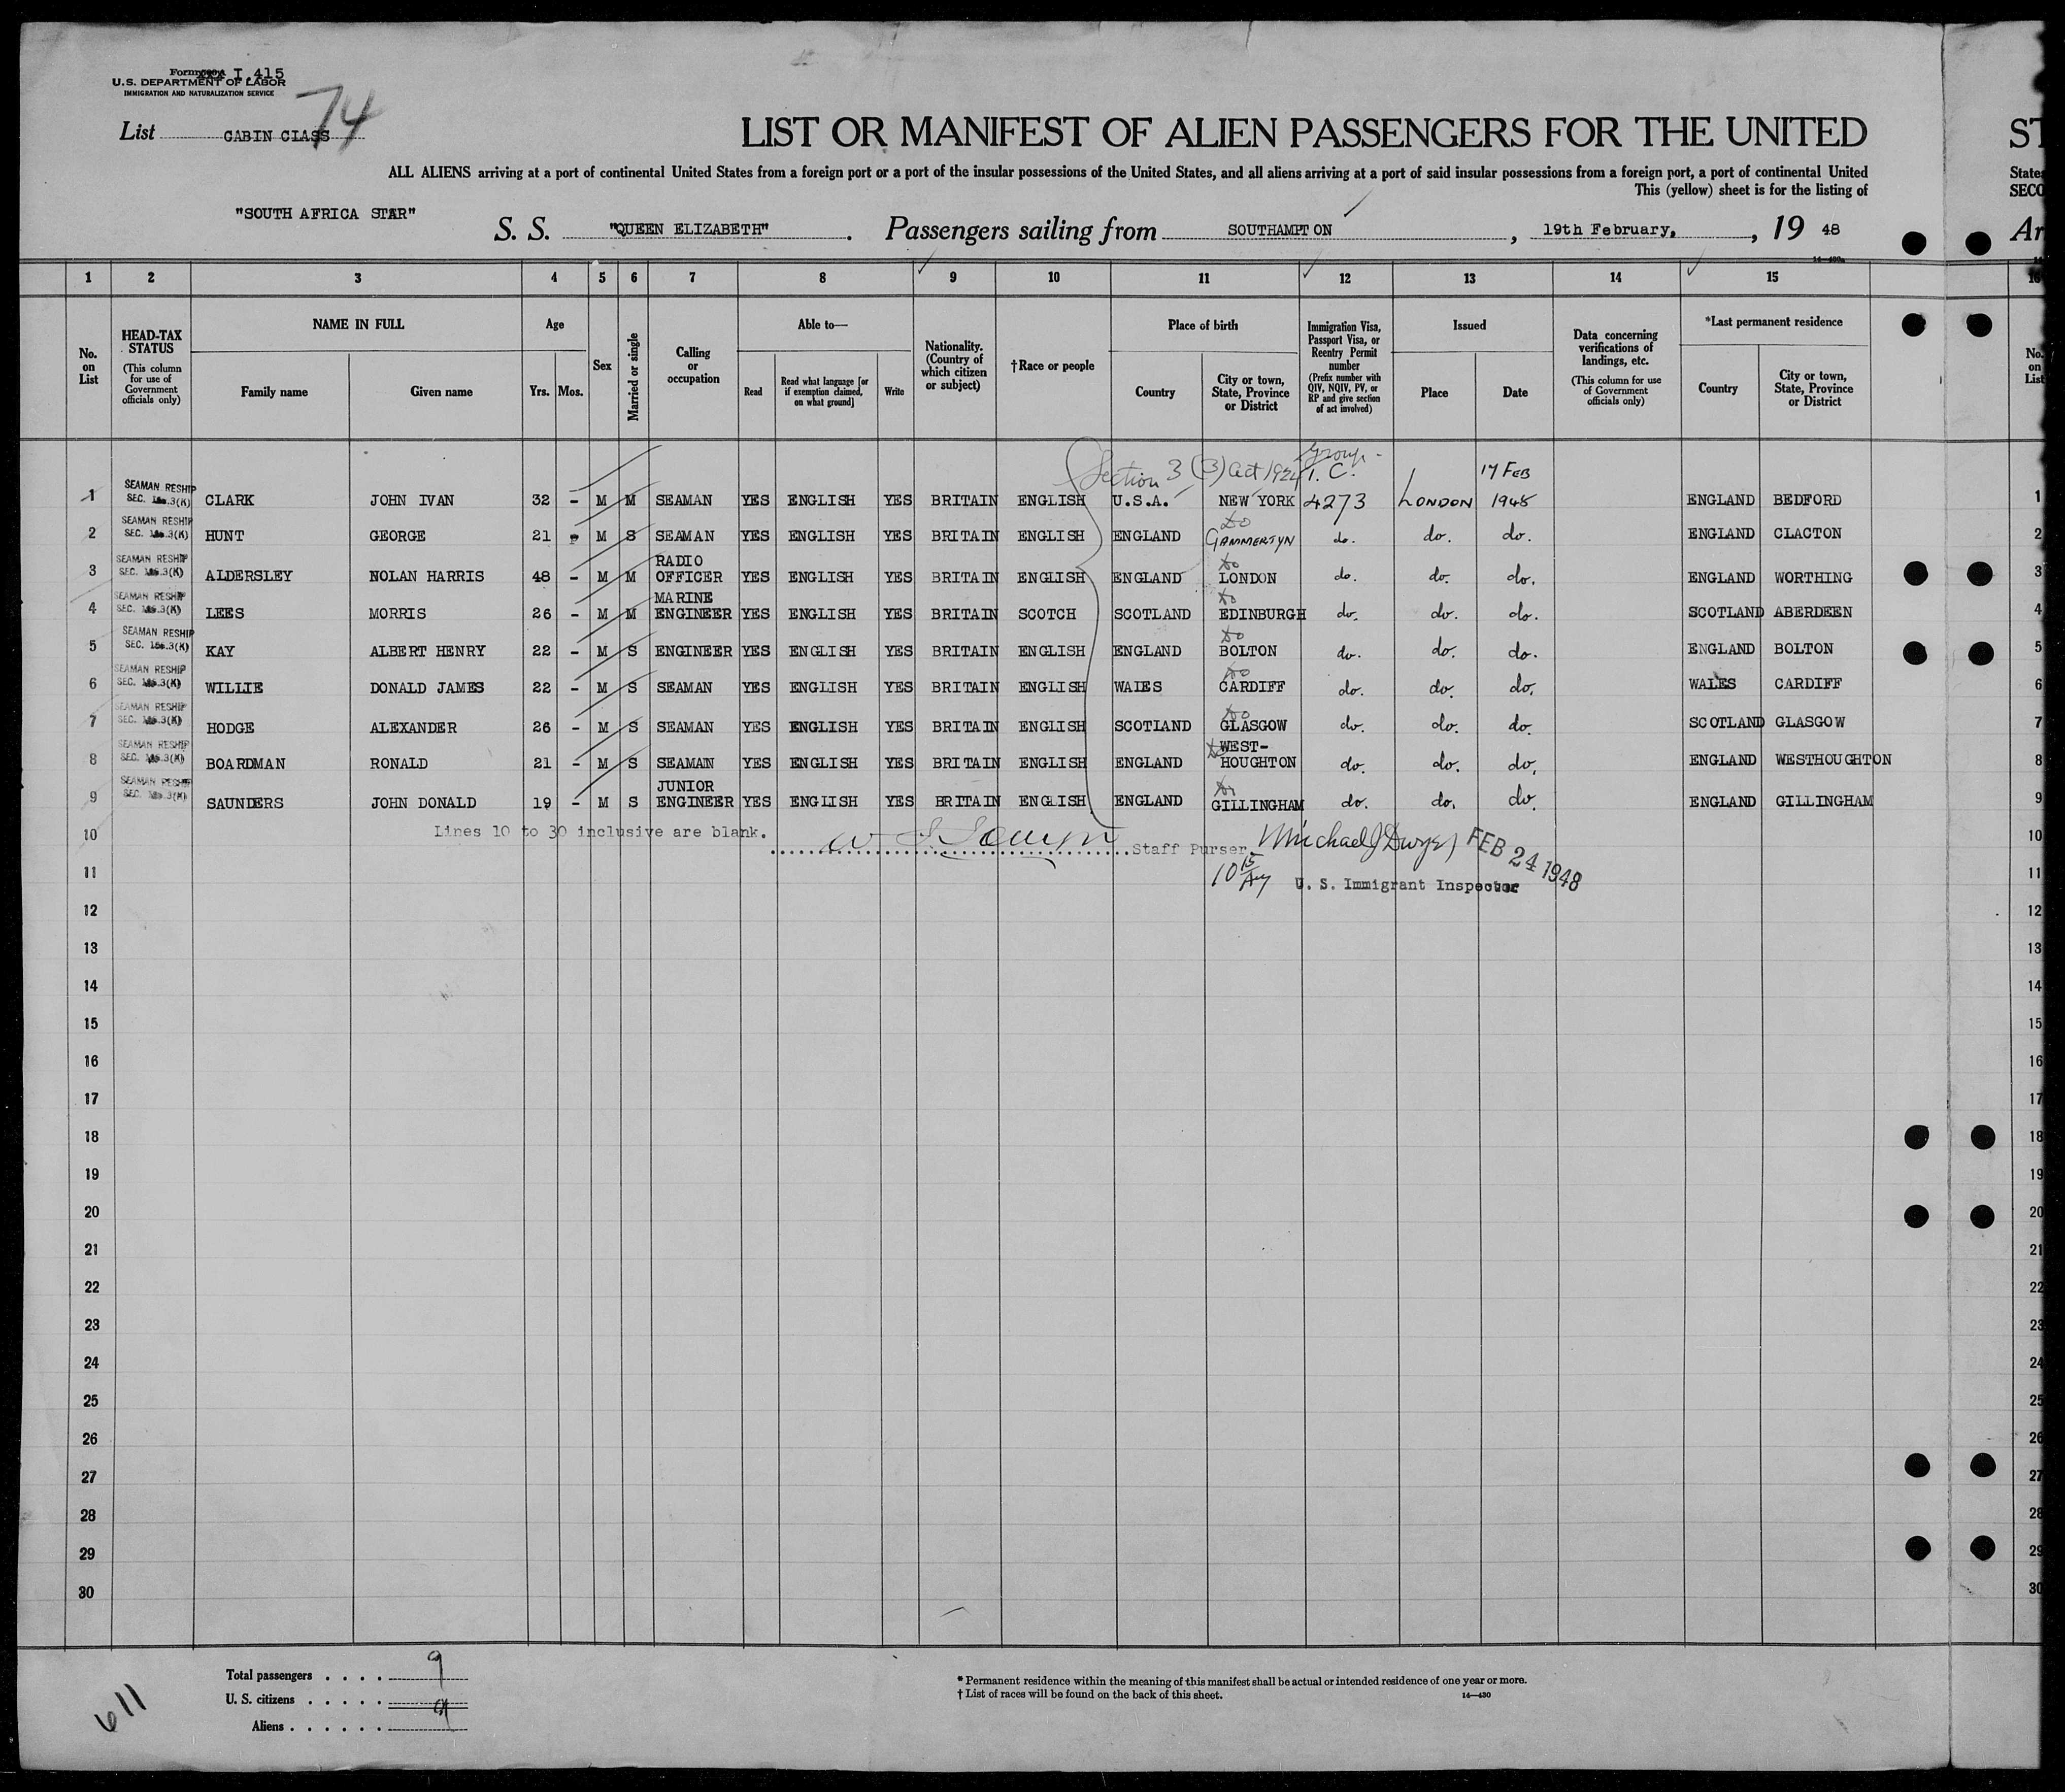 Form I 415
U.S. DEPARTMENT OF LABOR
IMMIGRATION AND NATURALIZATION SERVICE
74
List CABIN CLASS
LIST OR MANIFEST OF ALIEN PASSENGERS FOR THE UNITED
ST
ALL ALIENS arriving at a port of continental United States from a foreign port or a port of the insular possessions of the United States, and all aliens arriving at a port of said insular possessions from a foreign port, a port of continental United
States
This (yellow) sheet is for the listing of
SECO
"SOUTH AFRICA STAR"
S. S. "QUEEN ELIZABETH". Passengers sailing from SOUTHAMPTON, 19th February, , 19 48
Ar
1 2 3 4 5 6 7 8 9 10 11 12 13 14 15 16
No. on List
HEAD-TAX STATUS
(This column for use of Government officials only)
NAME IN FULL
Family name Given name
Age
Yrs. Mos.
Sex
Married or single
Calling or occupation
Able to—
Read
Read what language [or if exemption claimed, on what ground]
Write
Nationality. (Country of which citizen or subject)
†Race or people
Place of birth
Country
City or town, State, Province or District
Immigration Visa, Passport Visa, or Reentry Permit number
(Prefix number with QIV, NQIV, PV, or RP and give section of act involved)
Issued
Place Date
Data concerning verifications of landings, etc.
(This column for use of Government officials only)
*Last permanent residence
Country
City or town, State, Province or District
No. on List
Section 3 (3) Act 1924 Group - T. C. 17 FEB
1 SEAMAN RESHIP SEC. 3(K) CLARK JOHN IVAN 32 - M M SEAMAN YES ENGLISH YES BRITAIN ENGLISH U.S.A. NEW YORK 4273 LONDON 1948 ENGLAND BEDFORD 1
2 SEAMAN RESHIP SEC. 3(K) HUNT GEORGE 21 - M S SEAMAN YES ENGLISH YES BRITAIN ENGLISH ENGLAND do GAMMERTYN do. do. do. ENGLAND CLACTON 2
3 SEAMAN RESHIP SEC. 3(K) ALDERSLEY NOLAN HARRIS 48 - M M RADIO OFFICER YES ENGLISH YES BRITAIN ENGLISH ENGLAND do LONDON do. do. do. ENGLAND WORTHING 3
4 SEAMAN RESHIP SEC. 3(K) LEES MORRIS 26 - M M MARINE ENGINEER YES ENGLISH YES BRITAIN SCOTCH SCOTLAND do EDINBURGH do. do. do. SCOTLAND ABERDEEN 4
5 SEAMAN RESHIP SEC. 3(K) KAY ALBERT HENRY 22 - M S ENGINEER YES ENGLISH YES BRITAIN ENGLISH ENGLAND do BOLTON do. do. do. ENGLAND BOLTON 5
6 SEAMAN RESHIP SEC. 3(K) WILLIE DONALD JAMES 22 - M S SEAMAN YES ENGLISH YES BRITAIN ENGLISH WALES do CARDIFF do. do. do. WALES CARDIFF 6
7 SEAMAN RESHIP SEC. 3(K) HODGE ALEXANDER 26 - M S SEAMAN YES ENGLISH YES BRITAIN ENGLISH SCOTLAND do GLASGOW do. do. do. SCOTLAND GLASGOW 7
8 SEAMAN RESHIP SEC. 3(K) BOARDMAN RONALD 21 - M S SEAMAN YES ENGLISH YES BRITAIN ENGLISH ENGLAND do WEST-HOUGHTON do. do. do. ENGLAND WESTHOUGHTON 8
9 SEAMAN RESHIP SEC. 3(K) SAUNDERS JOHN DONALD 19 - M S JUNIOR ENGINEER YES ENGLISH YES BRITAIN ENGLISH ENGLAND do GILLINGHAM do. do. do. ENGLAND GILLINGHAM 9
10 Lines 10 to 30 inclusive are blank. Staff Purser. Michael J Dwyer FEB 24 1948 10
11 10 15 U. S. Immigrant Inspector 11
12 12
13 13
14 14
15 15
16 16
17 17
18 18
19 19
20 20
21 21
22 22
23 23
24 24
25 25
26 26
27 27
28 28
29 29
30 30
Total passengers . . . . 9
U. S. citizens . . . . .
Aliens . . . . . . 9
611
* Permanent residence within the meaning of this manifest shall be actual or intended residence of one year or more.
† List of races will be found on the back of this sheet.
14—430